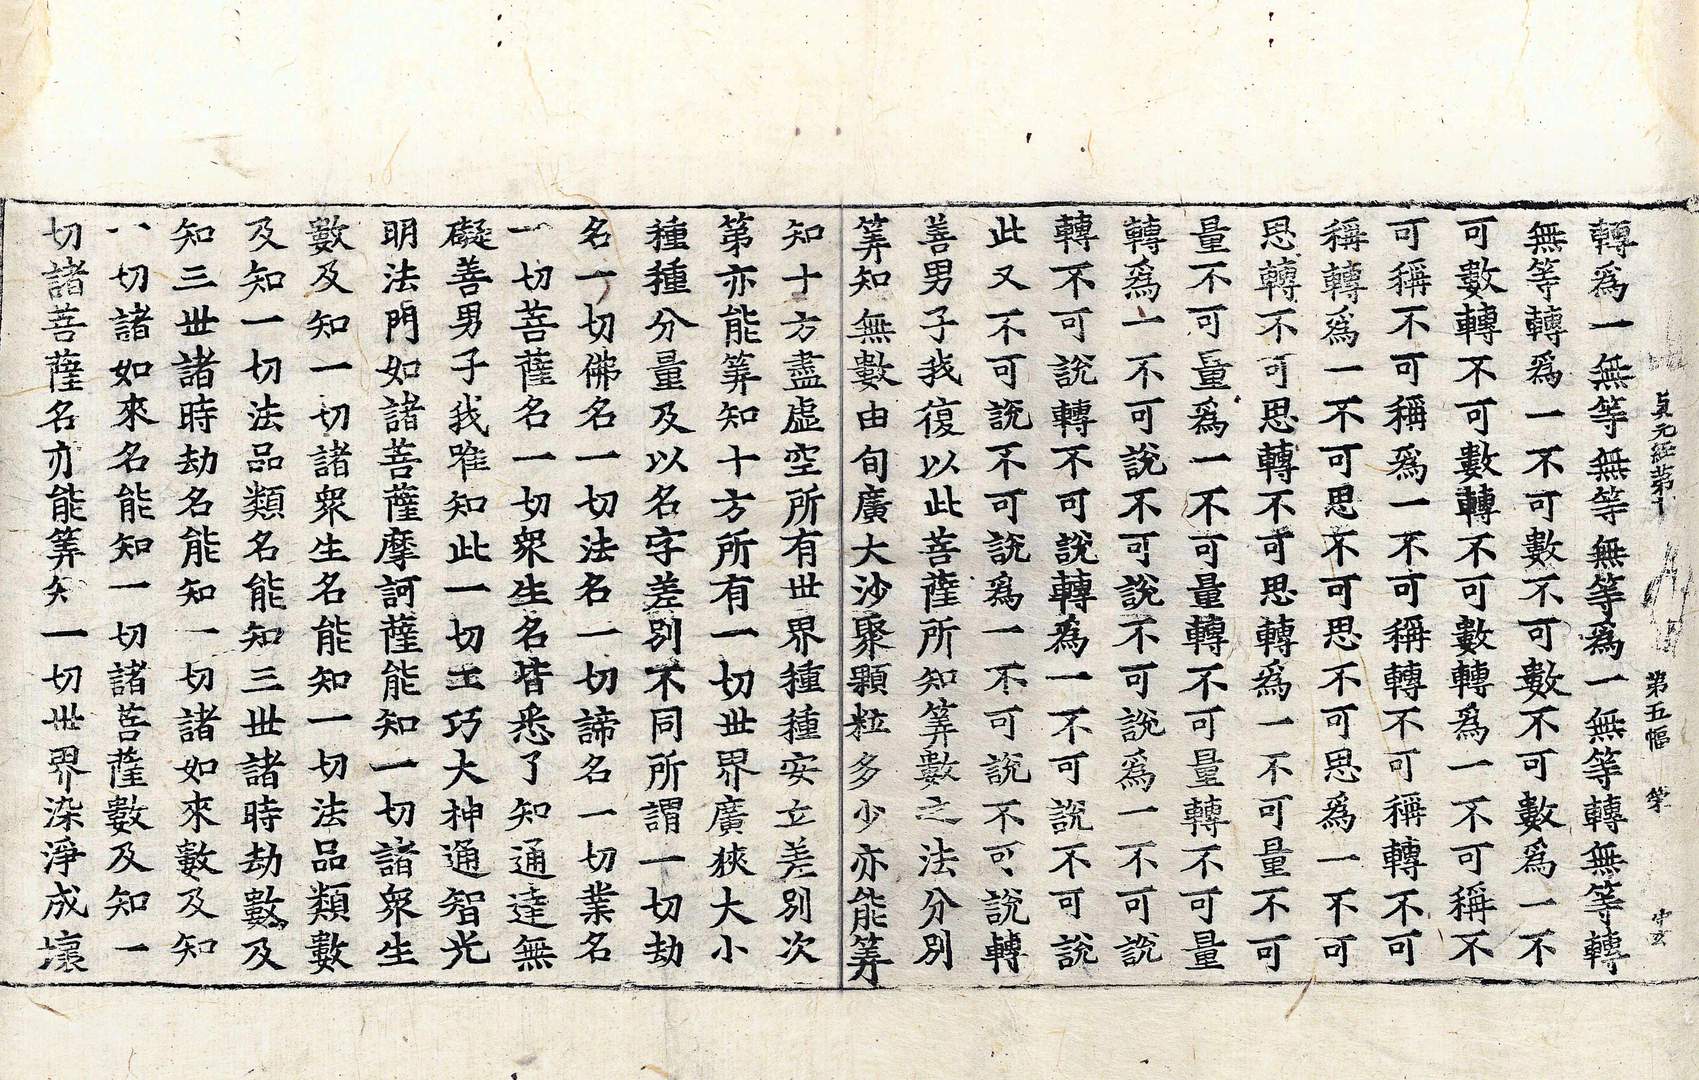 貞元經第十 第五幅
轉爲一無等無等無等爲一無等轉無等轉
無等轉爲一不可數不可數不可數爲一不
可數轉不可數轉不可數轉爲一不可稱不
可稱不可稱爲一不可稱轉不可稱轉不可
稱轉爲一不可思不可思不可思爲一不可
思轉不可思轉不可思轉爲一不可量不可
量不可量爲一不可量轉不可量轉不可量
轉爲一不可說不可說不可說爲一不可說
轉不可說轉不可說轉爲一不可說不可說
此又不可說不可說爲一不可說不可說轉
善男子我復以此菩薩所知筭數之法分別
筭知無數由旬廣大沙聚顆粒多少亦能筭
知十方盡虛空所有世界種種安立差別次
第亦能筭知十方所有一切世界廣狹大小
種種分量及以名字差別不同所謂一切劫
名一切佛名一切法名一切諦名一切業名
一切菩薩名一切衆生名皆悉了知通達無
礙善男子我唯知此一切工巧大神通智光
明法門如諸菩薩摩訶薩能知一切諸衆生
數及知一切諸衆生名能知一切法品類數
及知一切法品類名能知三世諸時劫數及
知三世諸時劫名能知一切諸如來數及知
一切諸如來名能知一切諸菩薩數及知一
切諸菩薩名亦能筭知一切世界染淨成壞